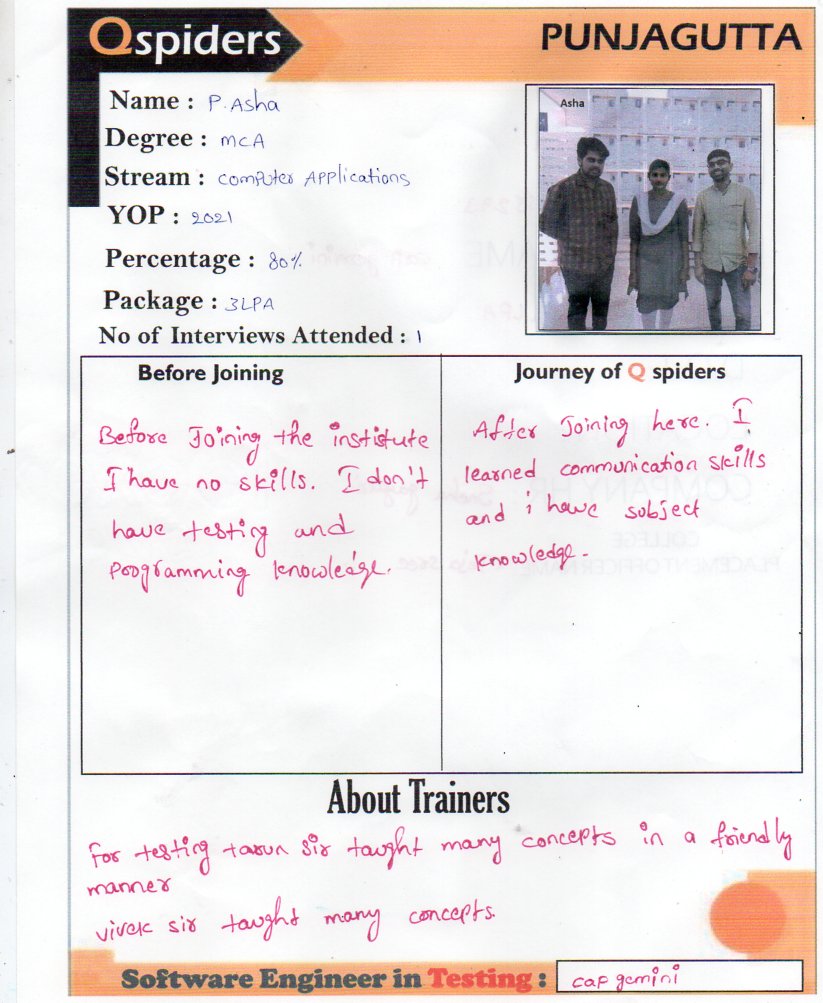 Qspiders
PUNJAGUTTA
Name : P. Asha
Degree : MCA
Stream : Computer Applications
YOP : 2021
Percentage : 80%
Package : 3LPA
No of Interviews Attended : 1
Asha
Before Joining
Before Joining the institute
I have no skills. I don't
have testing and
programming knowledge.
Journey of Q spiders
After Joining here. I
learned communication skills
and i have subject
knowledge.
About Trainers
For testing tarun sir taught many concepts in a friendly
manner
vivek sir taught many concepts.
Software Engineer in Testing : cap gemini